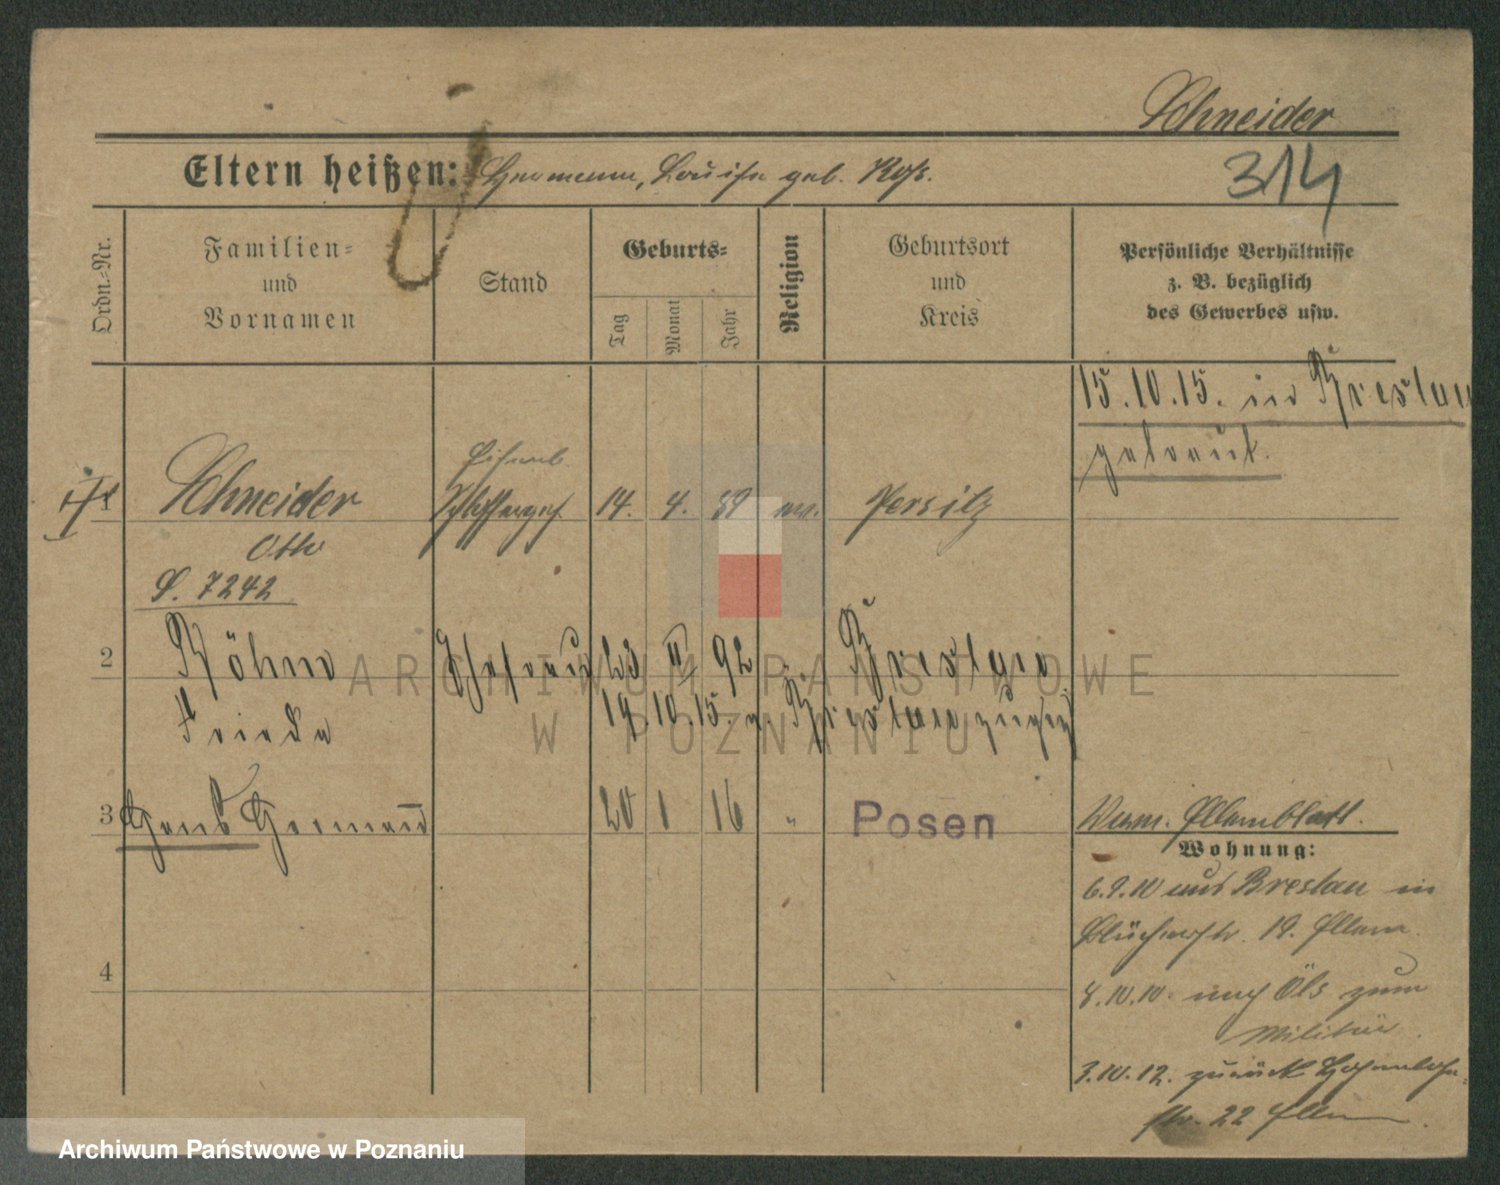 Schneider
Eltern heißen: Hermann, Louise geb.
314
Ordn.-Nr.
Familien-
und
Vornamen
Stand
Geburts-
Tag
Monat
Jahr
Religion
Geburtsort
und
Kreis
Persönliche Verhältnisse
z. B. bezüglich
des Gewerbes usw.
15.10.15. in Breslau
getraut.
1 Schneider 14. 4. 89 ev. Persitz
Otto
S. 7242
2 Böhm Ehefrau 23 II 92 " Breslau
Frieda 19.10.15. v. Breslau zugez.
3 Hans Hermann 20 1 16 " Posen
4
Wohnung:
6.9.10 aus Breslau in
Blücherstr. 19.
8.10.10. nach Öls zum
Militär.
3.10.12. zurück Hohenlohe-
str. 22
ARCHIWUM PAŃSTWOWE
W POZNANIU
Archiwum Państwowe w Poznaniu